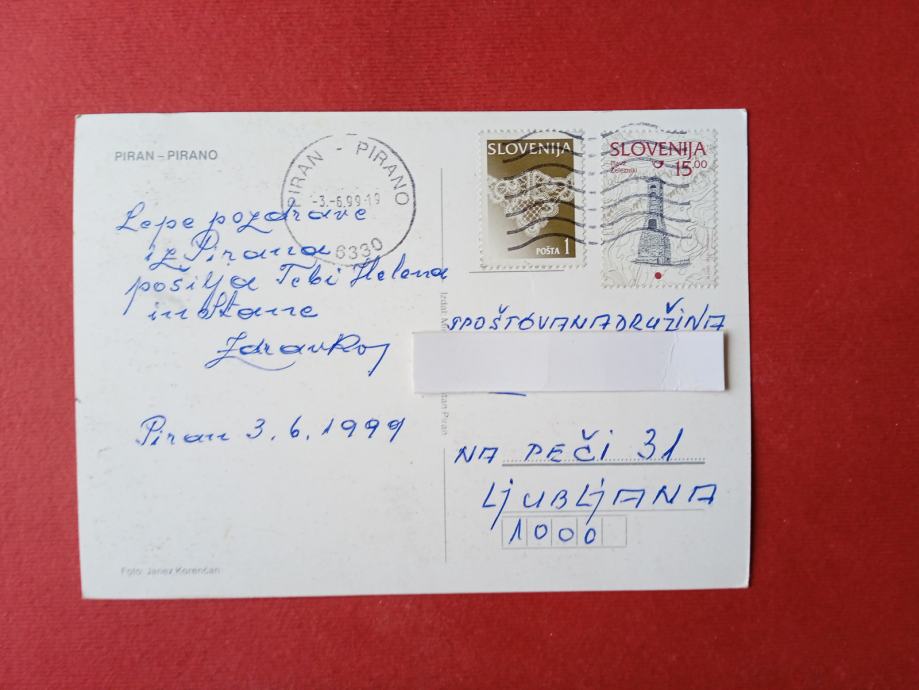 PIRAN – PIRANO
PIRAN - PIRANO
-3.-6.99-19
6330
SLOVENIJA
POŠTA 1
SLOVENIJA
15.00
Plavž
Železniki
Lepe pozdrave
iz Pirana
pošilja Tebi Helena
in Stane
Zdravkoj
Piran 3.6.1999
SPOŠTOVANA DRUŽINA
NA PEČI 31
LJUBLJANA
1000
Izdal:
Piran
Foto: Janez Korenčan